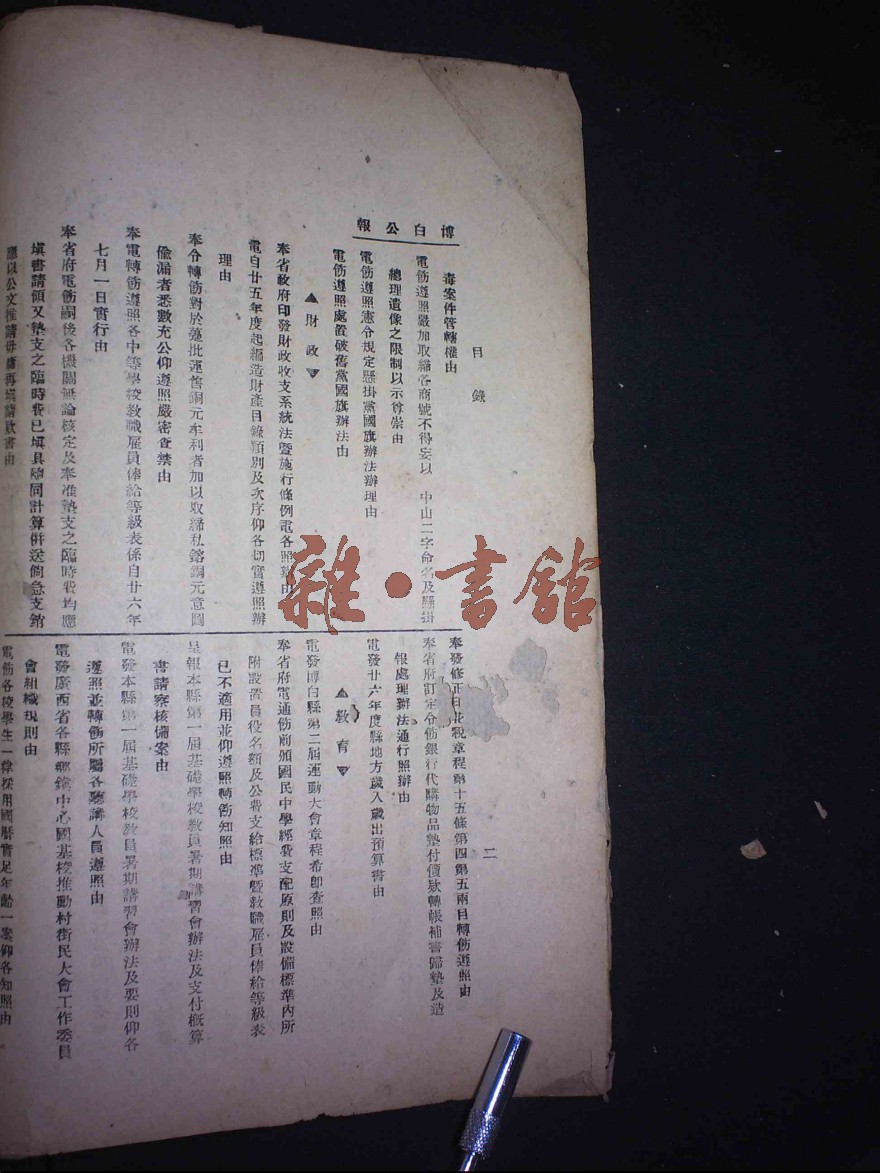 博白公報
目錄
二
毒案件管轄權由
電飭遵照嚴加取締各商號不得妄以 中山二字命名及懸掛
總理遺像之限制以示尊崇由
電飭遵照憲令規定懸掛黨國旗辦法辦理由
電飭遵照處置破舊黨國旗辦法由
▲財政▼
奉省政府印發財政收支系統法暨施行條例電各照辦由
電自廿五年度起編造財產目錄類別及次序仰各切實遵照辦
理由
奉令轉飭對於躉批運售銅元牟利者加以取締私鎔銅元意圖
偷漏者悉數充公仰遵照嚴密查禁由
奉電轉飭遵照各中等學校教職雇員俸給等級表係自廿六年
七月一日實行由
奉省府電飭嗣後各機關無論核定及奉准墊支之臨時費均應
填書請領又墊支之臨時費已填具隨同計算併送備急支銷
應以公文推請毋庸再填請款書由
奉發修正印花稅章程第十五條第四第五兩目轉飭遵照由
奉省府訂定令飭銀行代購物品墊付價欵轉帳補書歸墊及造
報處理辦法通行照辦由
電發廿六年度縣地方歲入歲出預算書由
▲教育▼
電發博白縣第二屆運動大會章程希卽查照由
奉省府電通飭前頒國民中學經費支配原則及設備標準內所
附設置員役名額及公費支給標準暨教職雇員俸給等級表
已不適用並仰遵照轉飭知照由
呈報本縣第一屆基礎學校教員暑期講習會辦法及支付概算
書請察核備案由
電發本縣第一屆基礎學校教員暑期講習會辦法及要則仰各
遵照並轉飭所屬各聽講人員遵照由
電發廣西省各縣鄉鎮中心國基校推動村街民大會工作委員
會組織規則由
電飭各校學生一律採用國曆實足年齡一案仰各知照由
雜·書館